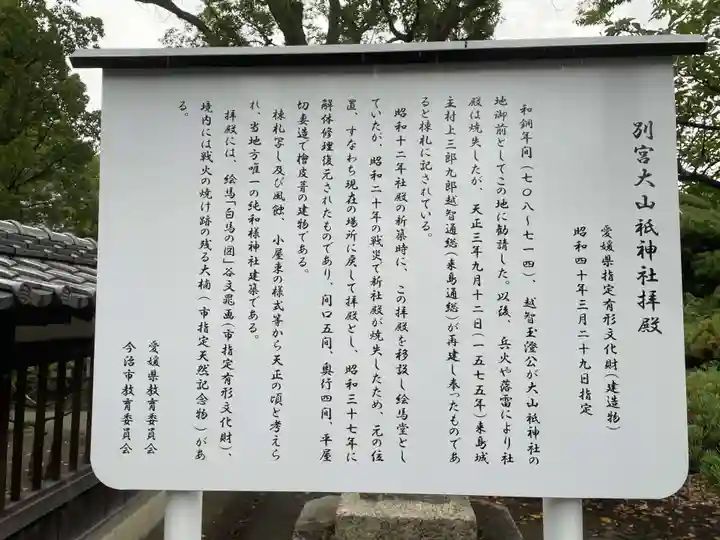 別宮大山祇神社拝殿
愛媛県指定有形文化財(建造物)
昭和四十年三月二十九日指定
和銅年間(七〇八〜七一四)、越智玉澄公が大山祇神社の
地御前としてこの地に勧請した。以後、兵火や落雷により社
殿は焼失したが、天正三年九月十二日(一五七五年)来島城
主村上三郎九郎越智通総(来島通総)が再建し奉ったものであ
ると棟札に記されている。
昭和十二年社殿の新築時に、この拝殿を移設し絵馬堂とし
ていたが、昭和二十年の戦災で新社殿が焼失したため、元の位
置、すなわち現在の場所に戻して拝殿とし、昭和三十七年に
解体修理復元されたものであり、間口五間、奥行四間、平屋
切妻造で檜皮葺の建物である。
棟札写し及び風蝕、小屋束の様式等から天正の頃と考えら
れ、当地方唯一の純和様神社建築である。
拝殿には、絵馬「白馬の図」谷文晁画(市指定有形文化財)、
境内には戦火の焼け跡の残る大楠(市指定天然記念物)があ
る。
愛媛県教育委員会
今治市教育委員会